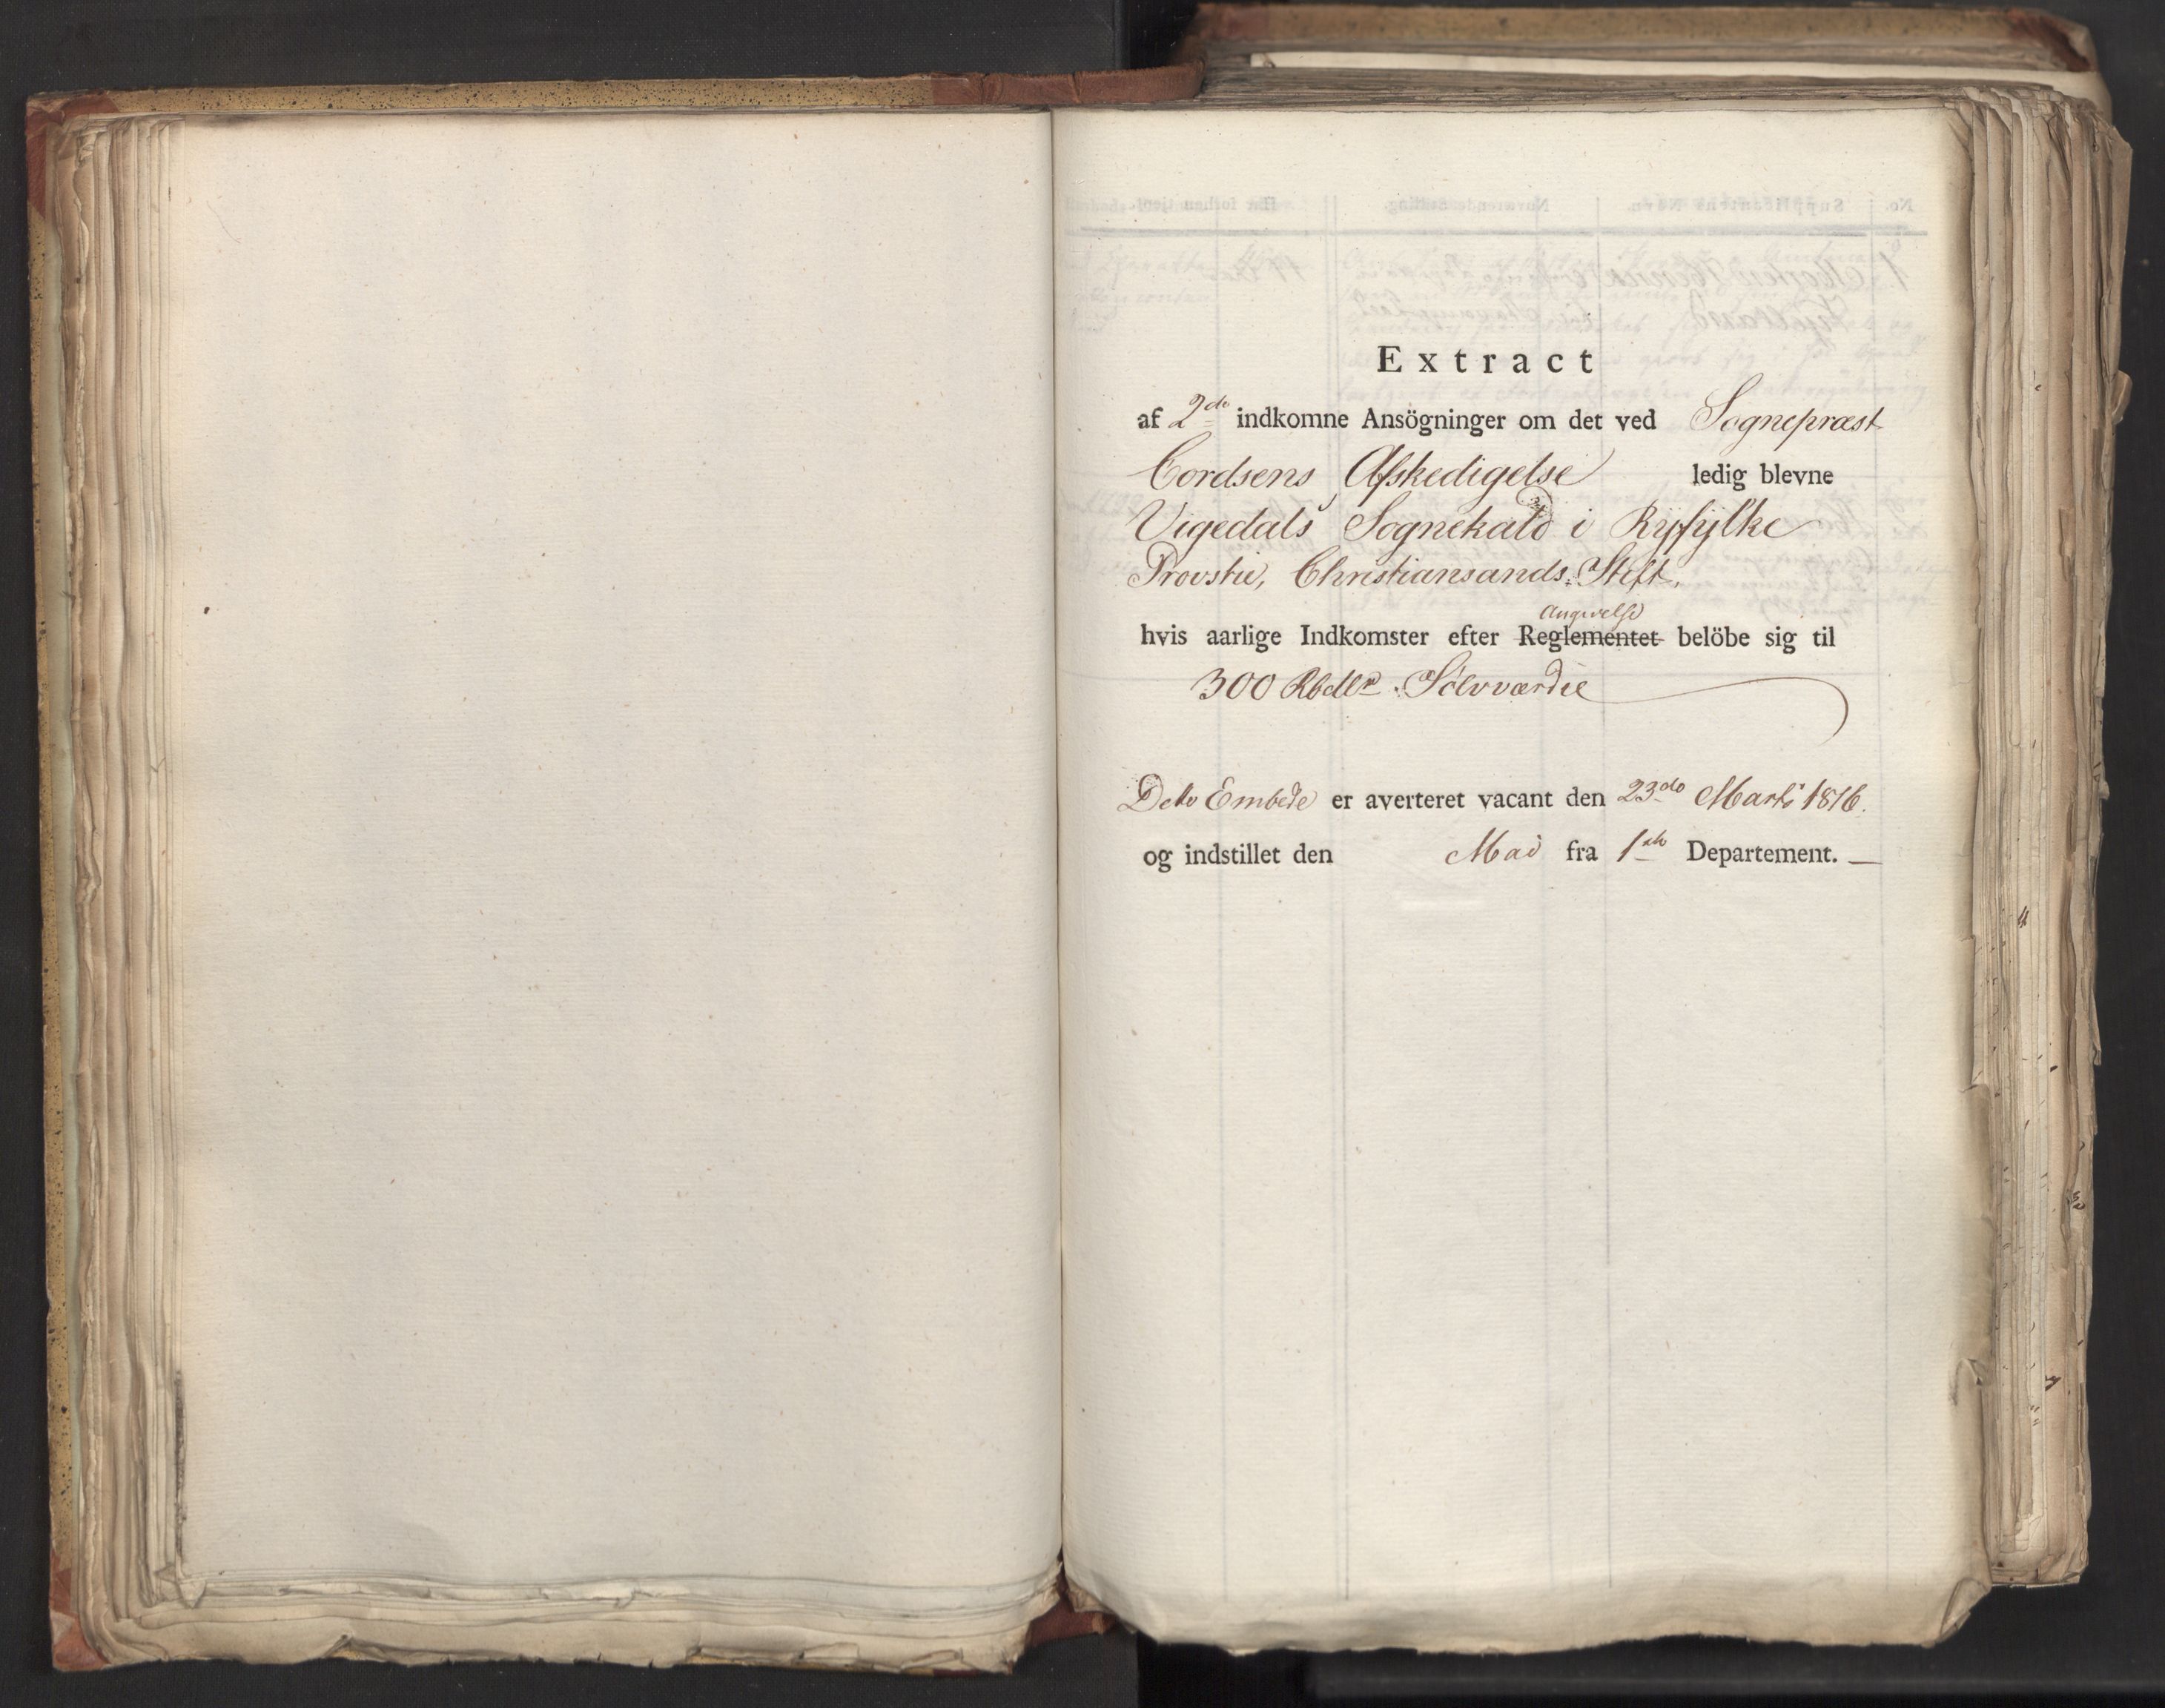 Extract
af 2de indkomne Ansögninger om det ved Sognepræst
Cordsens Afskedigelse ledig blevne
Vigedals Sognekald i Ryfylke
Provstie, Christiansands Stift.
Angivelse
hvis aarlige Indkomster efter Reglementet belöbe sig til
300 Rbdlr. Sølvværdie
Dette Embede er averteret vacant den 23de Marts 1816.
og indstillet den Mai fra 1ste Departement.